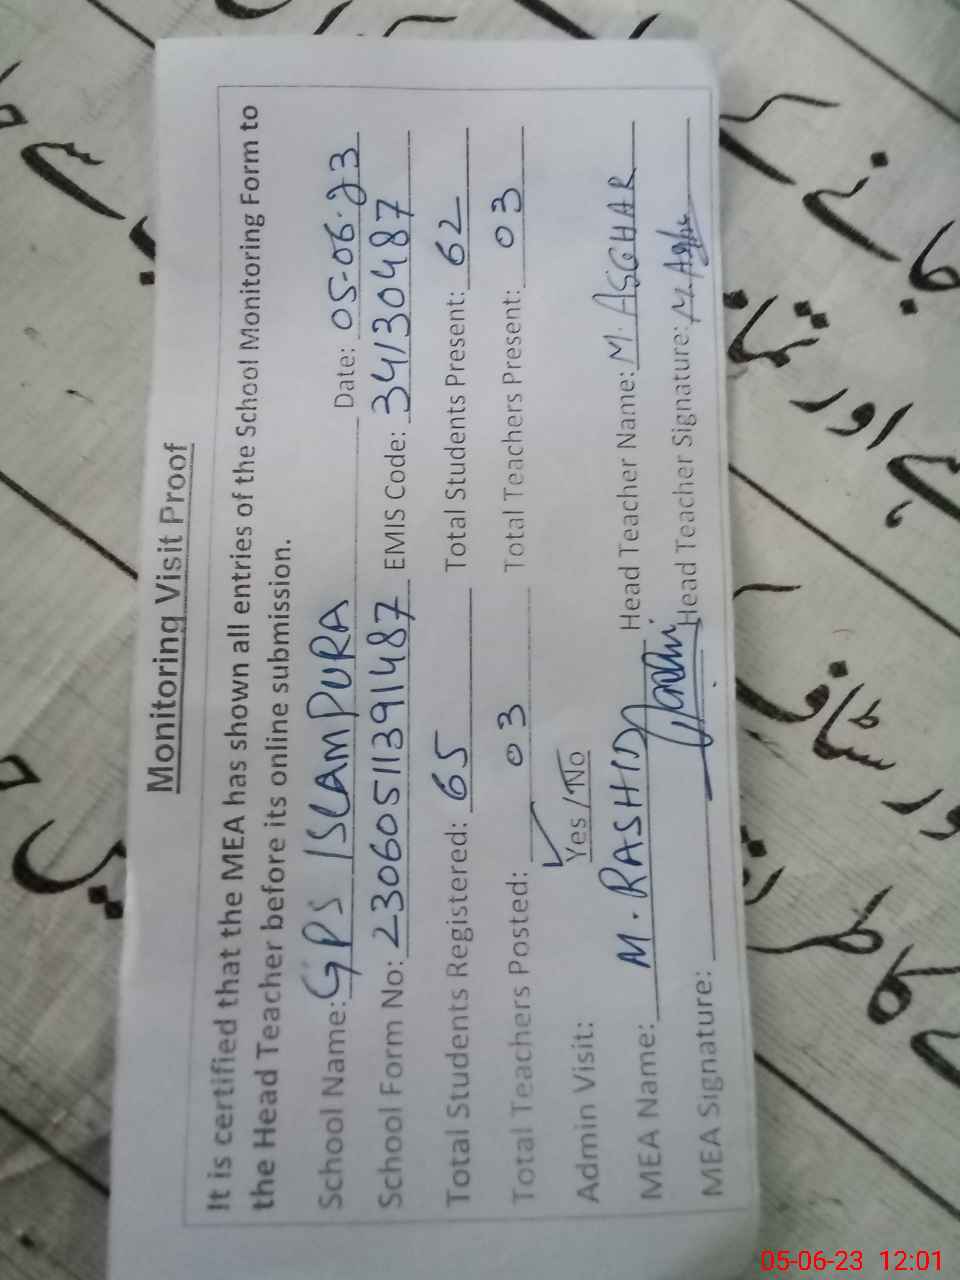 Monitoring Visit Proof
It is certified that the MEA has shown all entries of the School Monitoring Form to
the Head Teacher before its online submission.
School Name: GPS ISLAMPURA Date: 05-06-23
School Form No: 23060511391487 EMIS Code: 34130487
Total Students Registered: 65 Total Students Present: 62
Total Teachers Posted: 03 Total Teachers Present: 03
Admin Visit: Yes / No
MEA Name: M. RASHID Head Teacher Name: M. ASGHAR
MEA Signature: Head Teacher Signature: M. Asghar
جانے
ہے اور
سٹاف
05-06-23 12:01